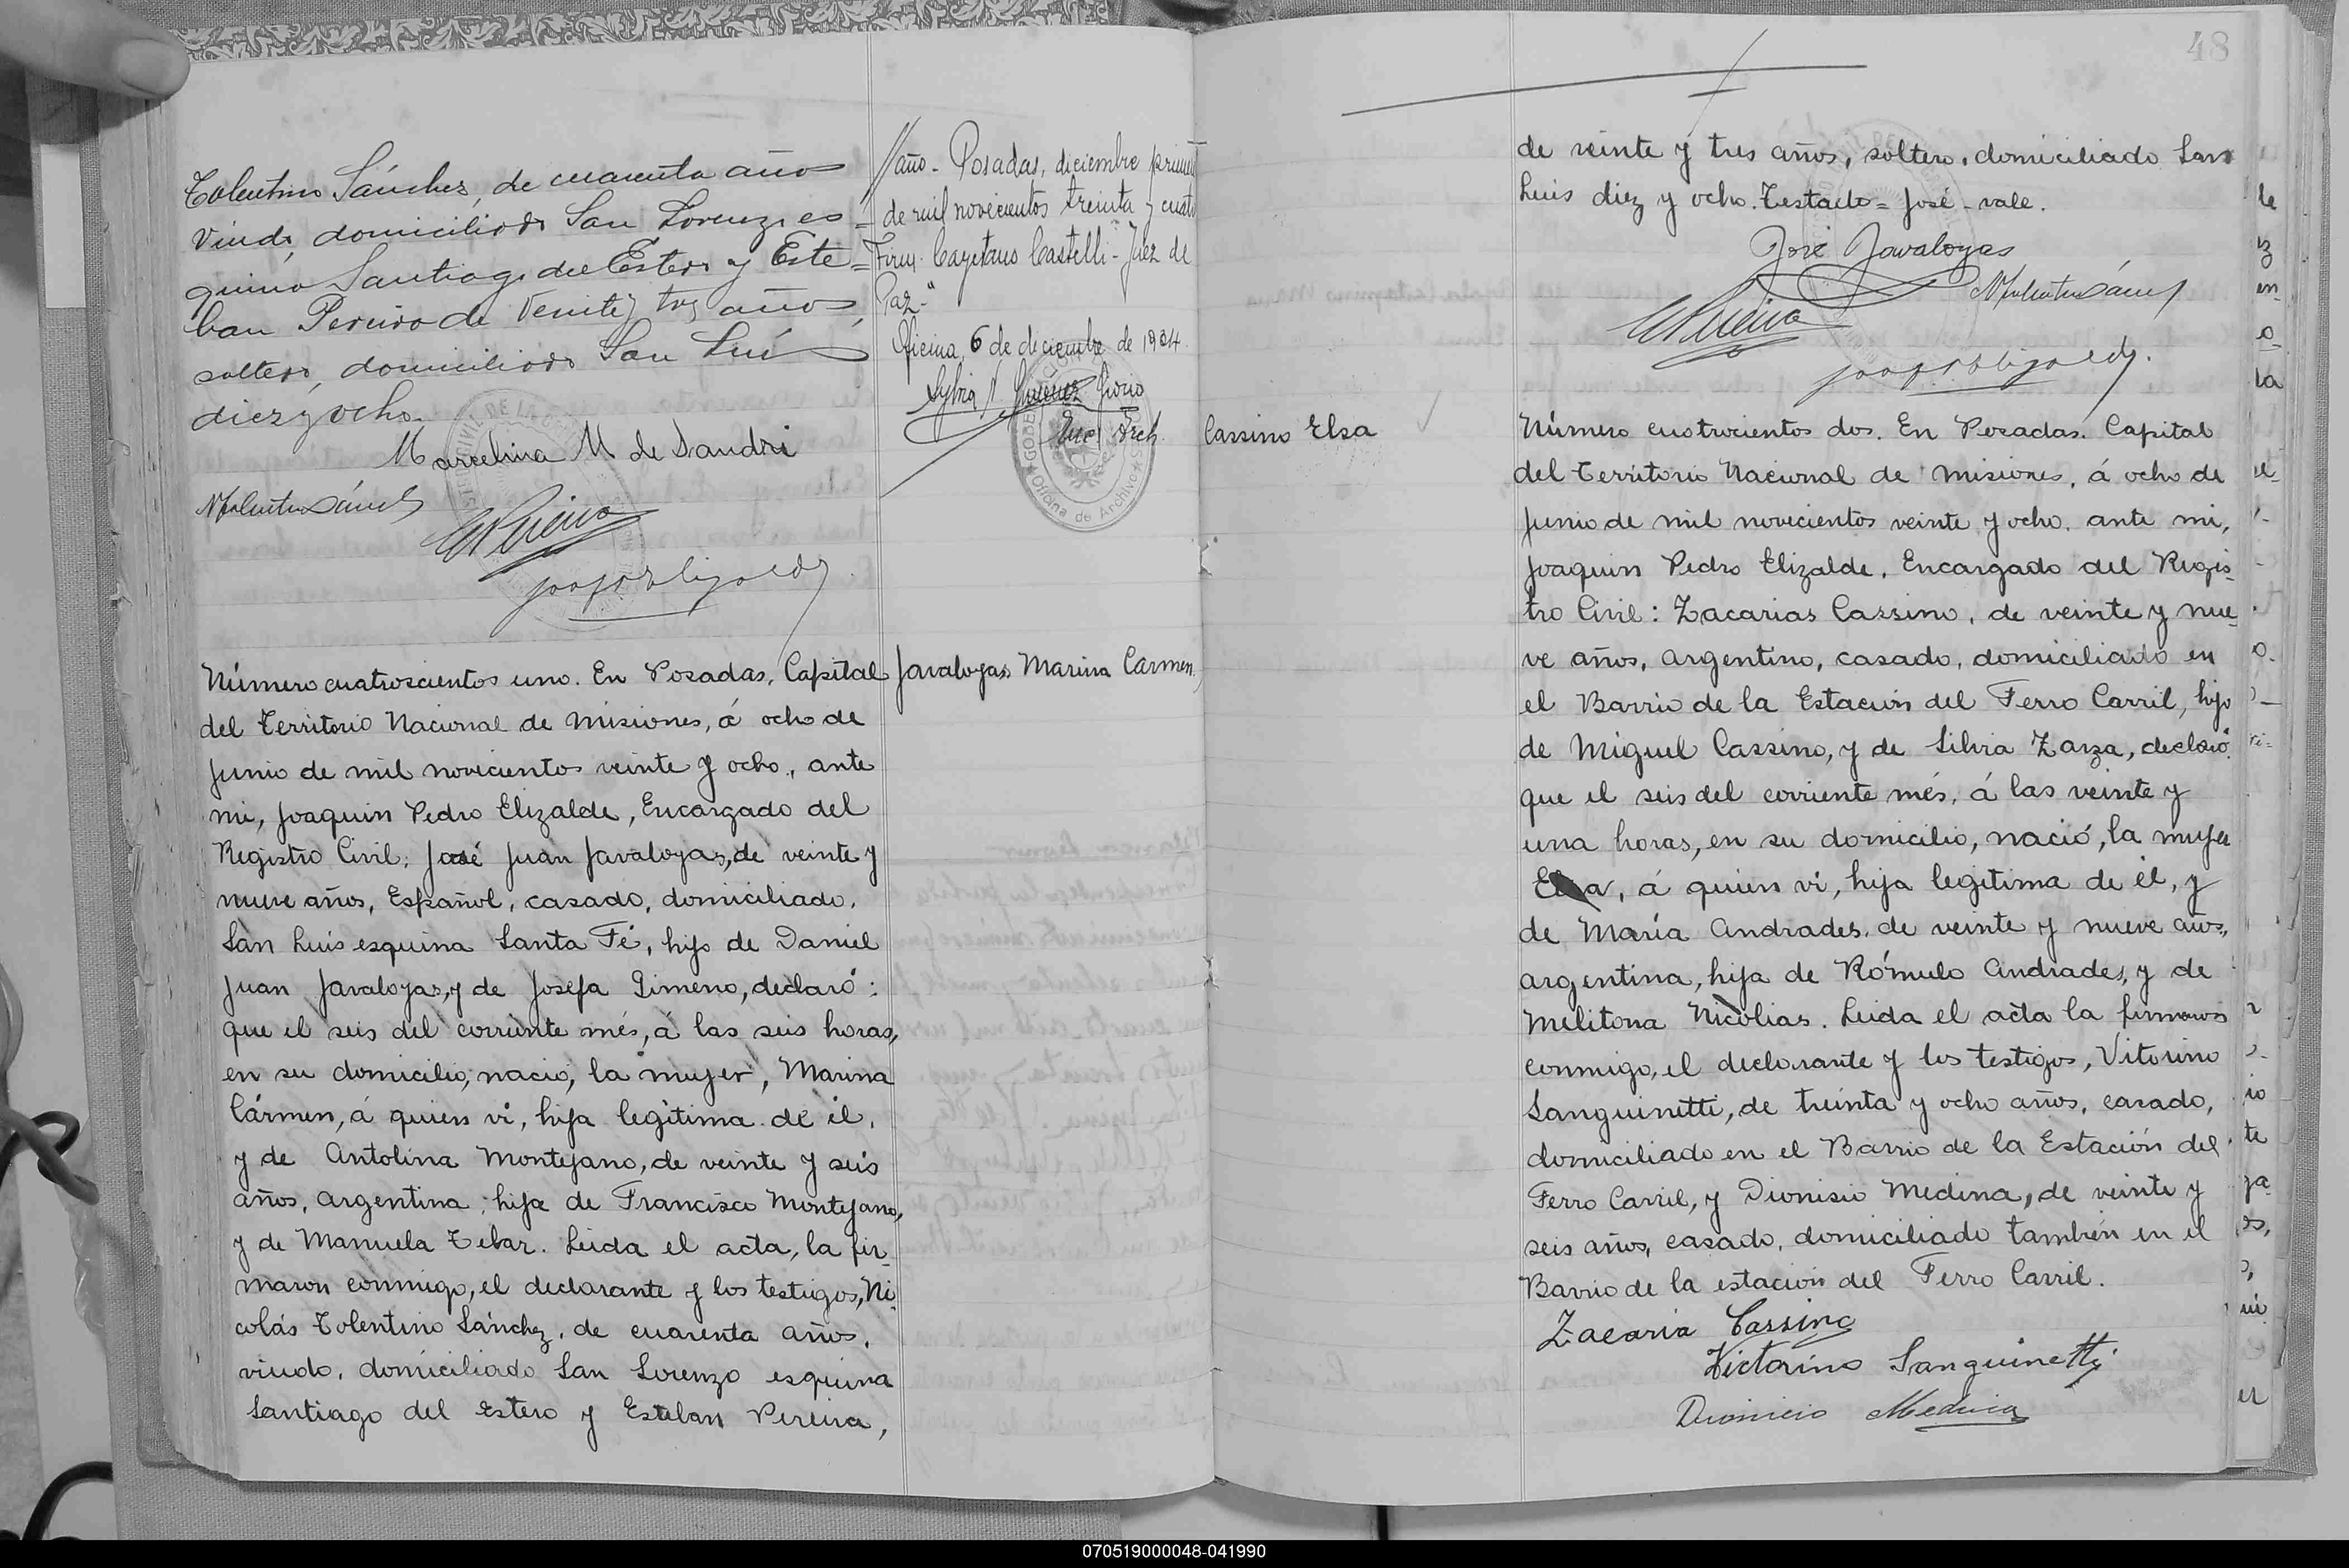 Tolentino Sánchez, de cuarenta años
viudo, domiciliado San Lorenzo es=
quina Santiago del Estero y Este=
ban Pereira de veinte y tres años,
soltero, domiciliado San Luis
diez y ocho.
Marcelina M de Sandri
NTolentino Sánchez
EPereira
//año - Posadas, diciembre primero
de mil novecientos treinta y cuatro
Firm. Cayetano Castelli - Juez de
Paz-"
Oficina, 6 de diciembre de 1934.
Enc Arch.
Oficina de Archivo
Número cuatroscientos uno. En Posadas, Capital
Javaloyas Marina Carmen
del Territorio Nacional de Misiones, á ocho de
Junio de mil novecientos veinte y ocho, ante
mi, Joaquin Pedro Elizalde, Encargado del
Registro Civil: José Juan Javaloyas, de veinte y
nueve años, Español, casado, domiciliado,
San Luis esquina Santa Fé, hijo de Daniel
Juan Javaloyas, y de Josefa Gimeno, declaró:
que el seis del corriente més, á las seis horas,
en su domicilio, nació, la mujer, Marina
Cármen, á quien vi, hija legitima de él,
y de Antolina Montejano, de veinte y seis
años, argentina, hija de Francisco Montejano,
y de Manuela Tebar. Leida el acta, la fir-
maron conmigo, el declarante y los testigos, Ni-
colás Tolentino Sánchez, de cuarenta años,
viudo, domiciliado San Lorenzo esquina
Santiago del Estero y Esteban Pereira,
48
de veinte y tres años, soltero, domiciliado San
Luis diez y ocho. Testado = José - vale.
José Javaloyas
EPereira
NTolentino Sánchez
Cassino Elsa
Número cuatrocientos dos. En Posadas. Capital
del Territorio Nacional de Misiones, á ocho de
Junio de mil novecientos veinte y ocho, ante mi,
Joaquin Pedro Elizalde, Encargado del Regis-
tro Civil: Zacarias Cassino, de veinte y nue-
ve años, argentino, casado, domiciliado en
el Barrio de la Estación del Ferro Carril, hijo
de Miguel Cassino, y de Silvia Zarza, declaró:
que el seis del corriente més, á las veinte y
una horas, en su domicilio, nació, la mujer
Elsa, á quien vi, hija legitima de él, y
de María Andrades, de veinte y nueve años,
argentina, hija de Rómulo Andrades, y de
Melitona Nicolias. Leida el acta la firmaron
conmigo, el declarante y los testigos, Vitorino
Sanguinetti, de treinta y ocho años, casado,
domiciliado en el Barrio de la Estación del
Ferro Carril, y Dionisio Medina, de veinte y
seis años, casado, domiciliado también en el
Barrio de la estación del Ferro Carril.
Zacaria Cassino
Victorino Sanguinetti
Dionicio Medina
070519000048-041990